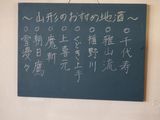 ～山形のおすすめ地酒～
○千代寿
○雅山流
○楯野川
○くどき上手
○上喜元
○魔斬
○朝日鷹